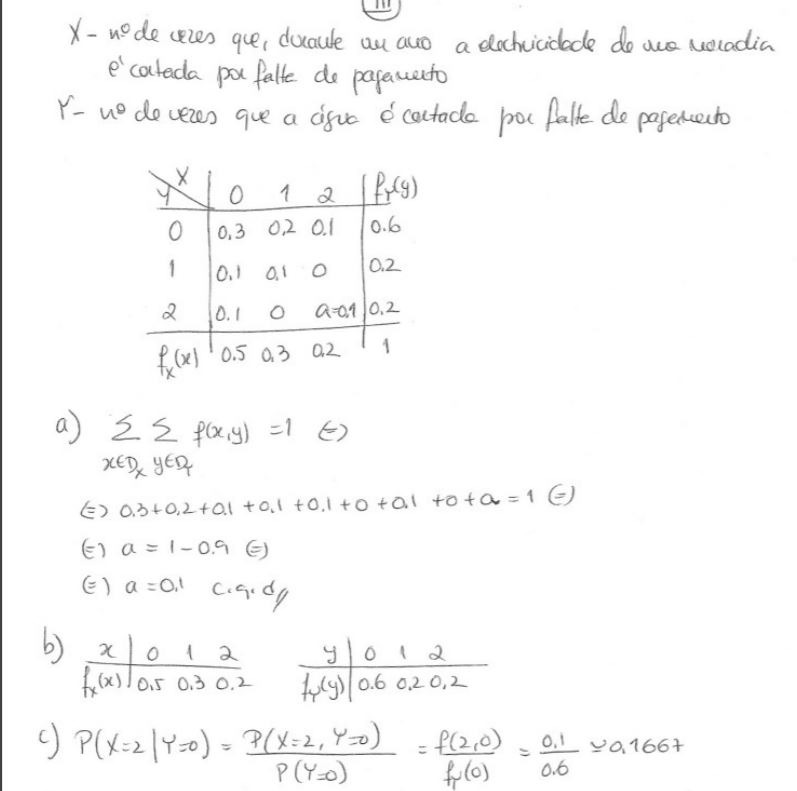 III
X - nº de vezes que, durante um ano a electricidade de uma moradia
é cortada por falta de pagamento
Y - nº de vezes que a água é cortada por falta de pagamento
Y X | 0 1 2 | fY(y)
0 | 0,3 0,2 0.1 | 0.6
1 | 0.1 0.1 0 | 0.2
2 | 0.1 0 a=0.1 | 0.2
fX(x) | 0.5 0.3 0.2 | 1
a) Σ Σ f(x,y) = 1 (=)
x∈DX y∈DY
(=) 0.3+0,2+0.1+0.1+0.1+0+0.1+0+a = 1 (=)
(=) a = 1-0.9 (=)
(=) a = 0.1 c.q.d//
b) x | 0 1 2 y | 0 1 2
fX(x) | 0.5 0.3 0.2 fY(y) | 0.6 0,2 0,2
c) P(X=2|Y=0) = P(X=2, Y=0) / P(Y=0) = f(2,0) / fY(0) = 0.1 / 0.6 ≃ 0,1667